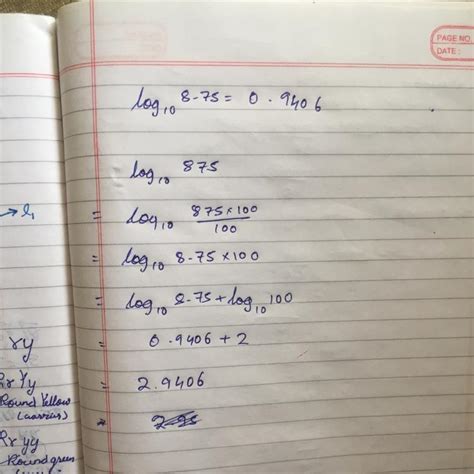 PAGE NO.
DATE :
log₁₀ 8.75 = 0.9406
log₁₀ 875
= log₁₀ 875×100/100
= log₁₀ 8.75×100
= log₁₀ 8.75 + log₁₀ 100
= 0.9406 + 2
= 2.9406
ry
Rr Yy
Round Yellow
Rr yy
Round green